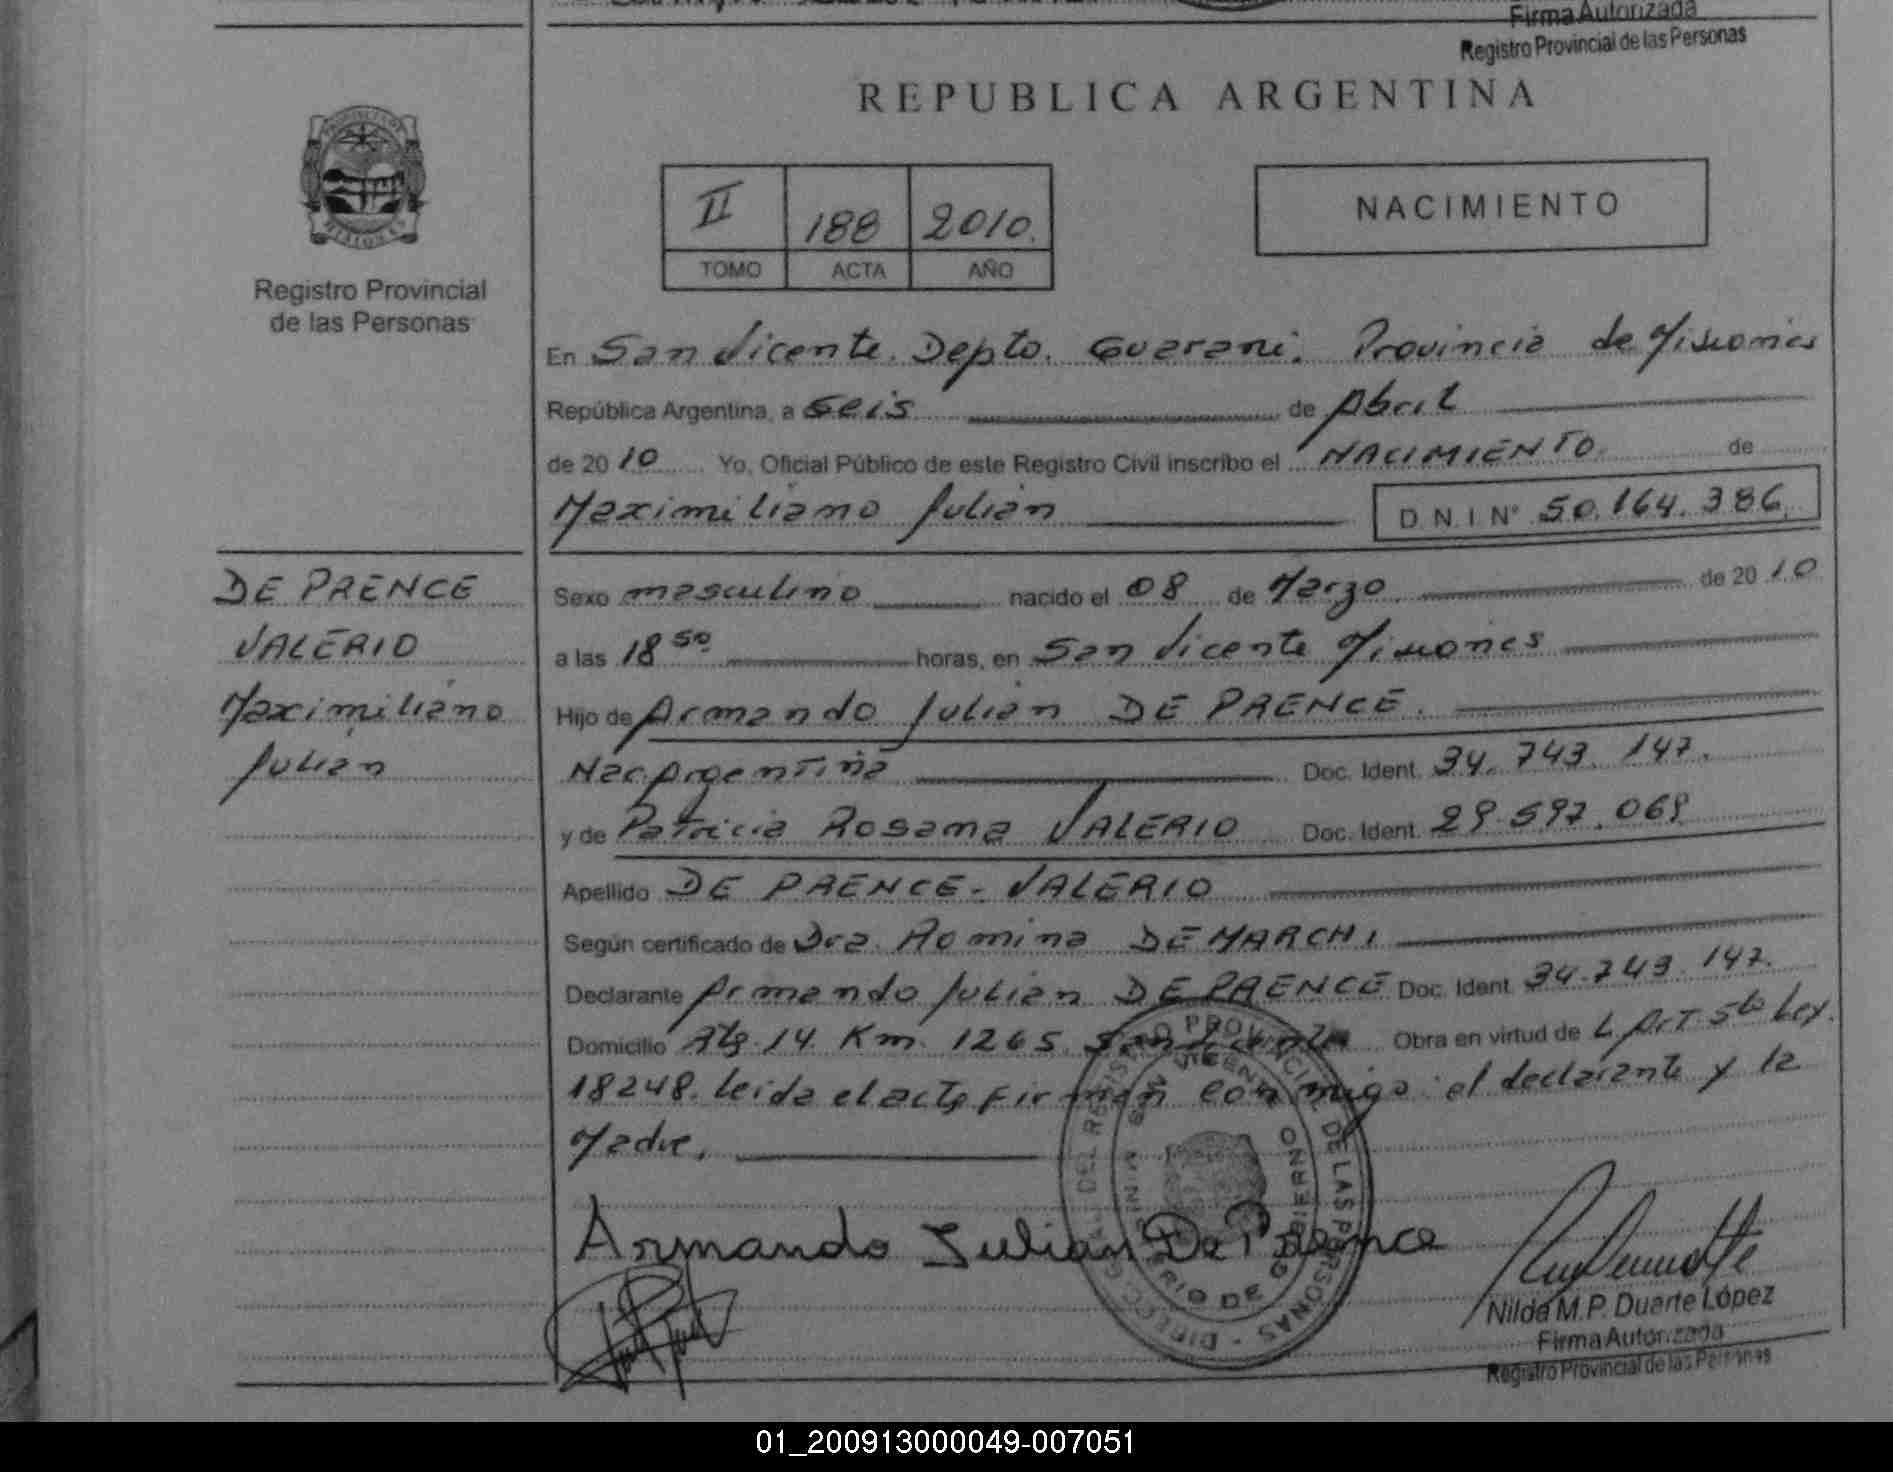 Firma Autorizada
Registro Provincial de las Personas
REPUBLICA ARGENTINA
PROVINCIA DE MISIONES
Registro Provincial
de las Personas
II 188 2010.
TOMO ACTA AÑO
NACIMIENTO
En San Vicente. Depto. Guarani. Provincia de Misiones
República Argentina, a Seis de Abril
de 20 10 Yo, Oficial Público de este Registro Civil inscribo el NACIMIENTO de
Maximiliano Julián D.N.I Nº 50.164.386.
DE PRENCE
VALERIO
Maximiliano
Julián
Sexo masculino nacido el 08 de Marzo de 20 10
a las 18 50 horas, en San Vicente Misiones
Hijo de Armando Julián DE PRENCE.
Nac. Argentina Doc. Ident. 34.743.147.
y de Patricia Rosana VALERIO Doc. Ident. 29.597.069
Apellido DE PRENCE - VALERIO
Según certificado de Dra. Romina DEMARCHI
Declarante Armando Julián DE PRENCE Doc. Ident. 34.743.147.
Domicilio Rta. 14 Km. 1265 San Vicente Obra en virtud de L. Art. 5to Ley.
18248. Leida el acta firman conmigo el declarante y la
Madre.
DEL REGISTRO PROVINCIAL DE LAS PERSONAS
SAN VICENTE
MINISTERIO DE GOBIERNO
Armando Julian De Prence
Nilda M.P. Duarte López
Firma Autorizada
Registro Provincial de las Personas
01_200913000049-007051